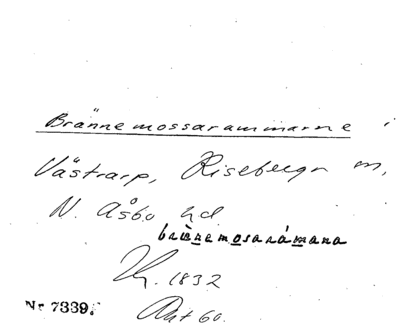 Brännemossarammarne i
Västrarp, Riseberga sn,
N. Åsbo hd
brännemosarámana
1832
Nr 7339. Akt 60.